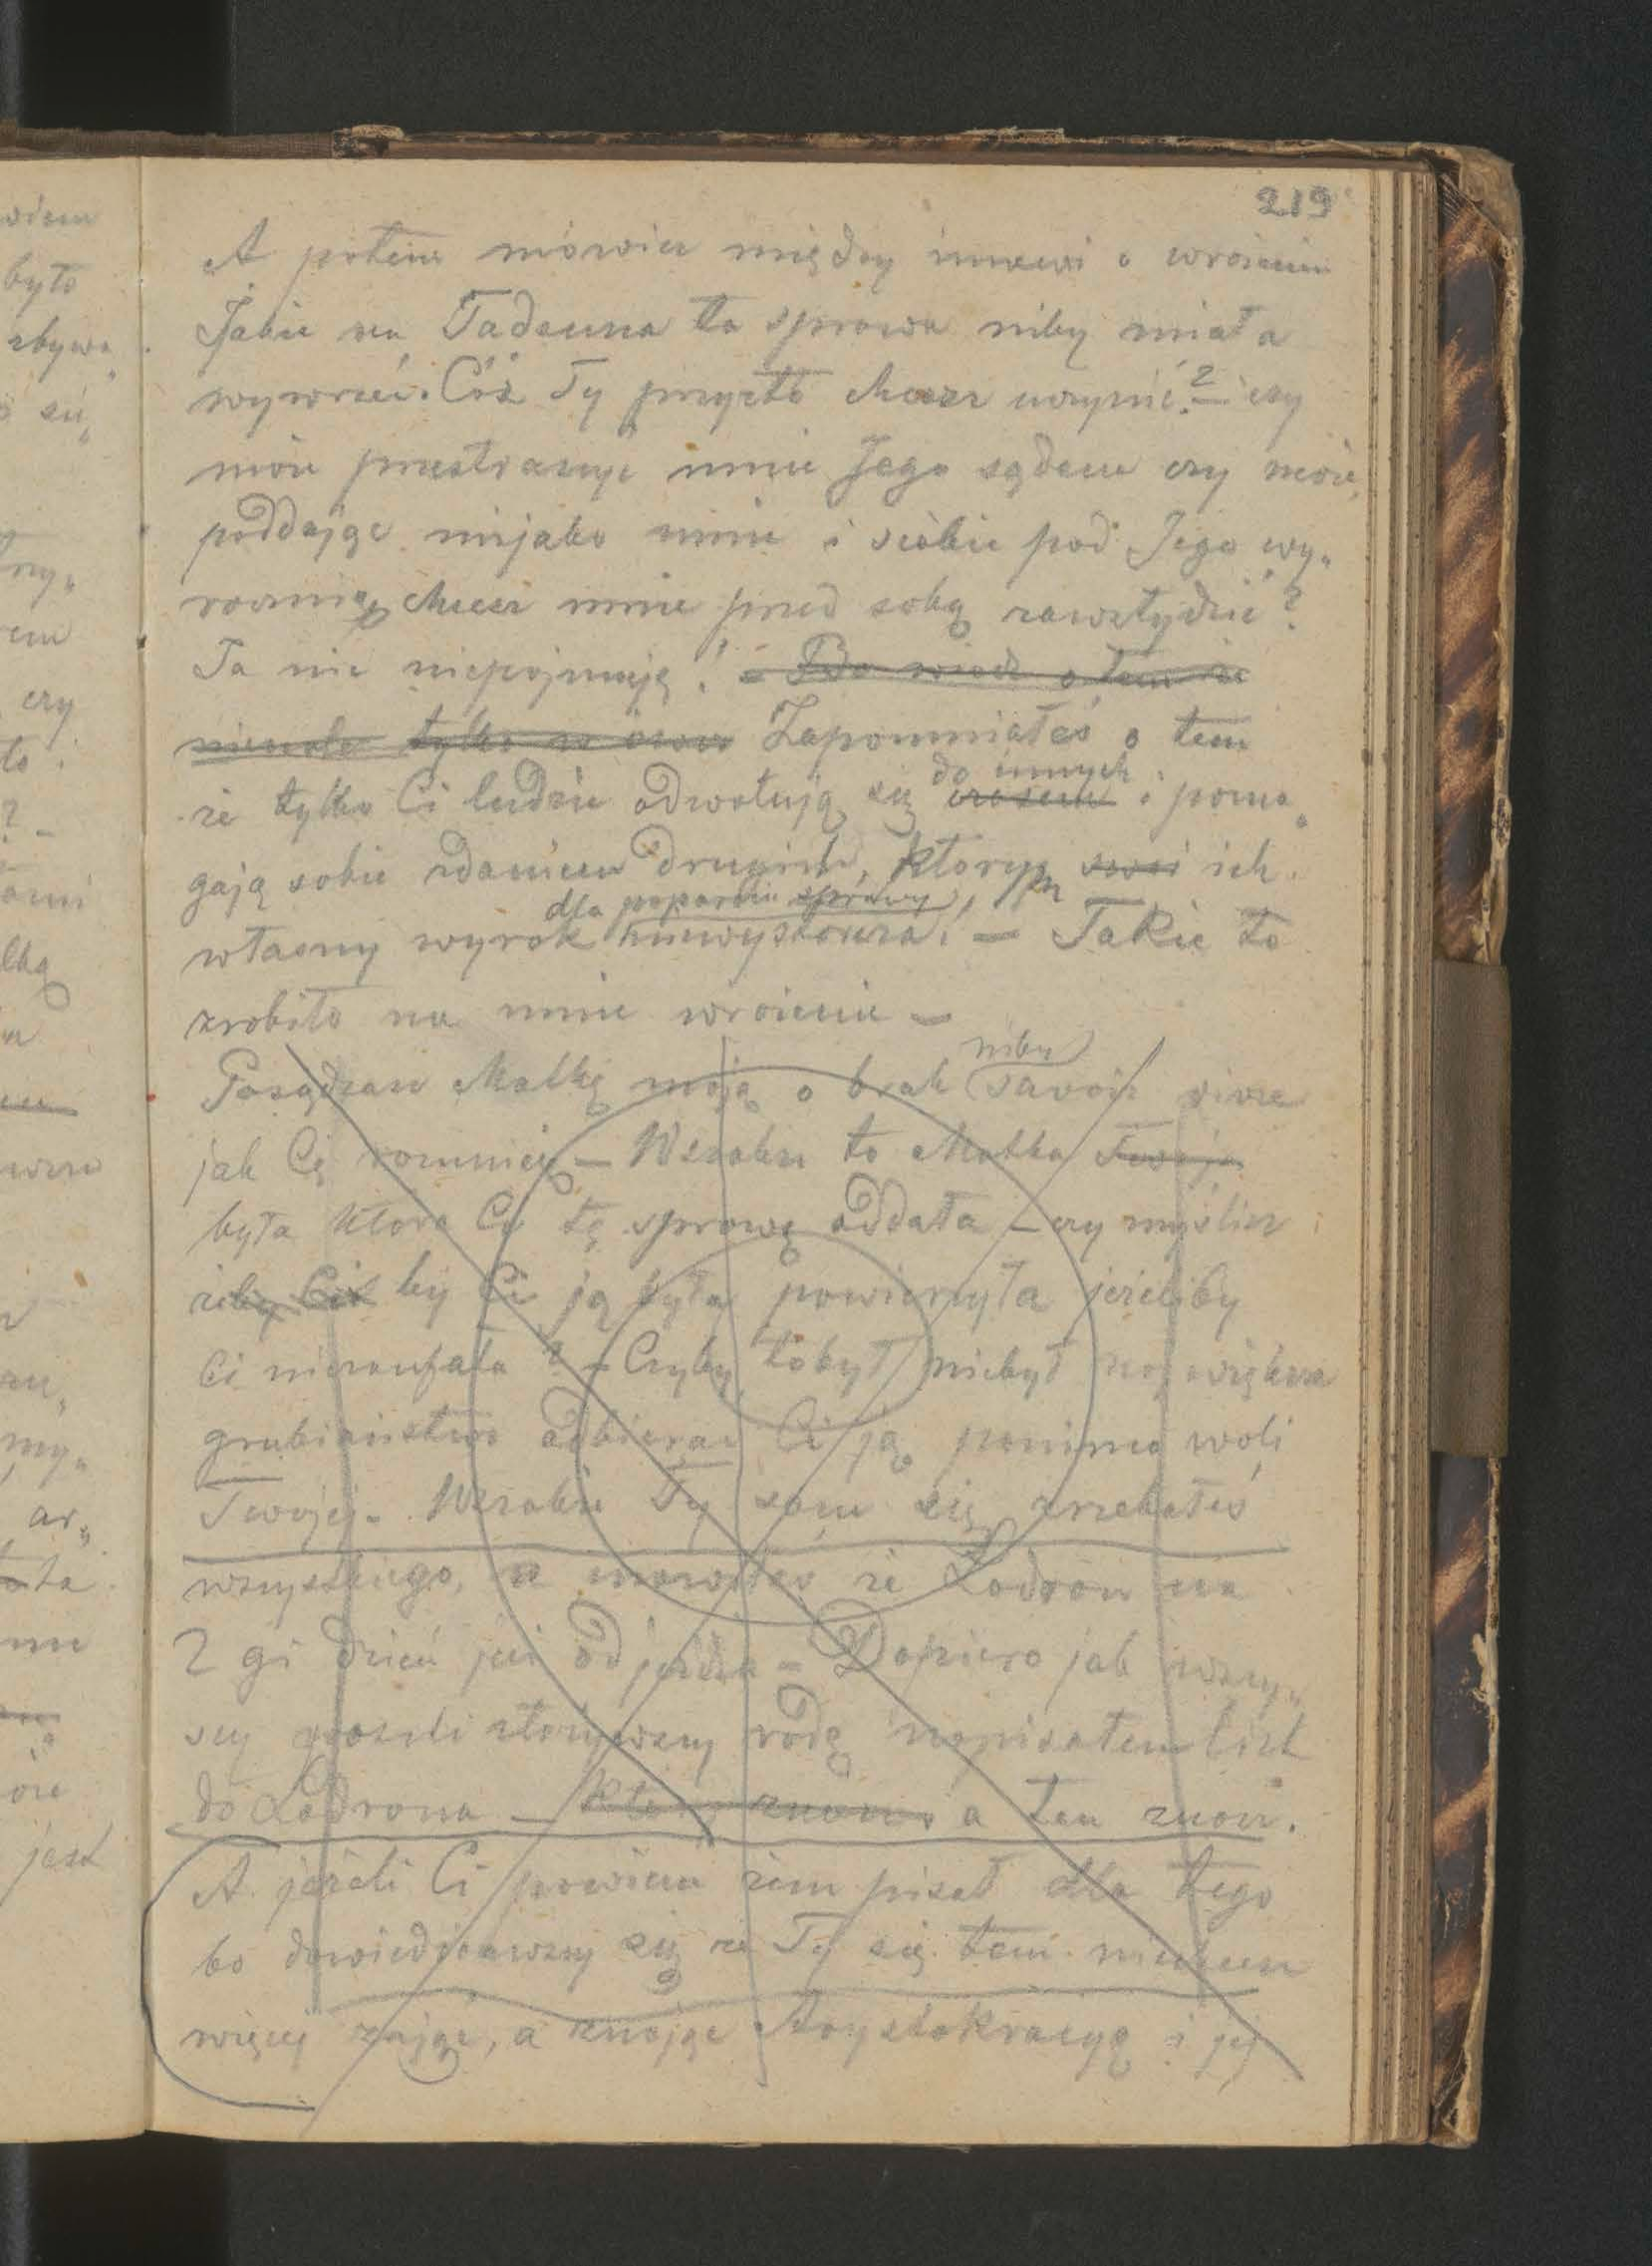 219
A potem mówisz między innemi o wrażeniu
Jakie na Tadeusza ta sprawa niby miała
wywrzeć. Cóż Ty przezto chcesz uczynić? – czy
może przestraszyć mnie Jego sądem czy może,
poddając niejako mnie i siebie pod Jego wy„
rocznię chcesz mnie przed sobą zawstydzić?
Ja nic niepojmuję! – Bo wiedz o tem że
tylko Zapomniałeś o tem
że tylko Ci ludzie odwołują się do innych i poma„
gają sobie zdaniem drugich, którym ich
własny wyrok dla poparcia sprawy, niewystarcza. – Takie to
zrobiło na mnie wrażenie –
niby
Posądzasz Matkę moją o brak savoir vivre
jak Cię rozumię – Wszakże to Matka Twoja
była która Ci tę sprawę oddała – czy myślisz
żeby by Ci ją była powierzyła jeżeliby
Ci niezaufała? – Czyby tobył niebył największe
grubiaństwo odbierać Ci ją pomimo woli
Twojej. Wszakże Ty sam się zrzekałeś
wszystkiego, mówiłeś że Lodron na
2gi dzień już odjeżdża – Dopiero jak wszy„
scy prosili złożywszy radę napisałem list
do Lodrona – a ten znowu.
A jeżeli Ci powiem żem pisał dla tego
bo dowiedziawszy się że Ty się tem niechcesz
więcej zająć, a znając Arystokracyą i jej